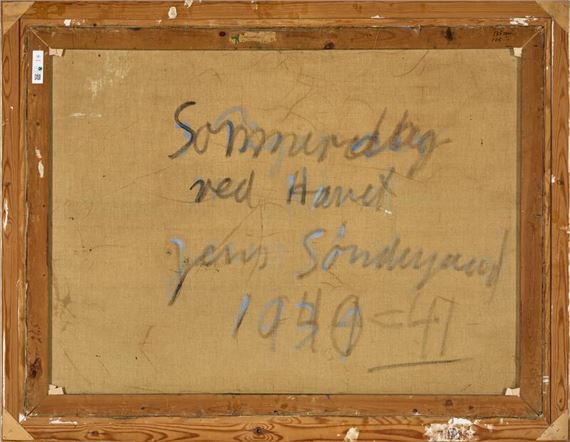 Sommerdag
ved Havet
Jens Søndergaard
1939=41